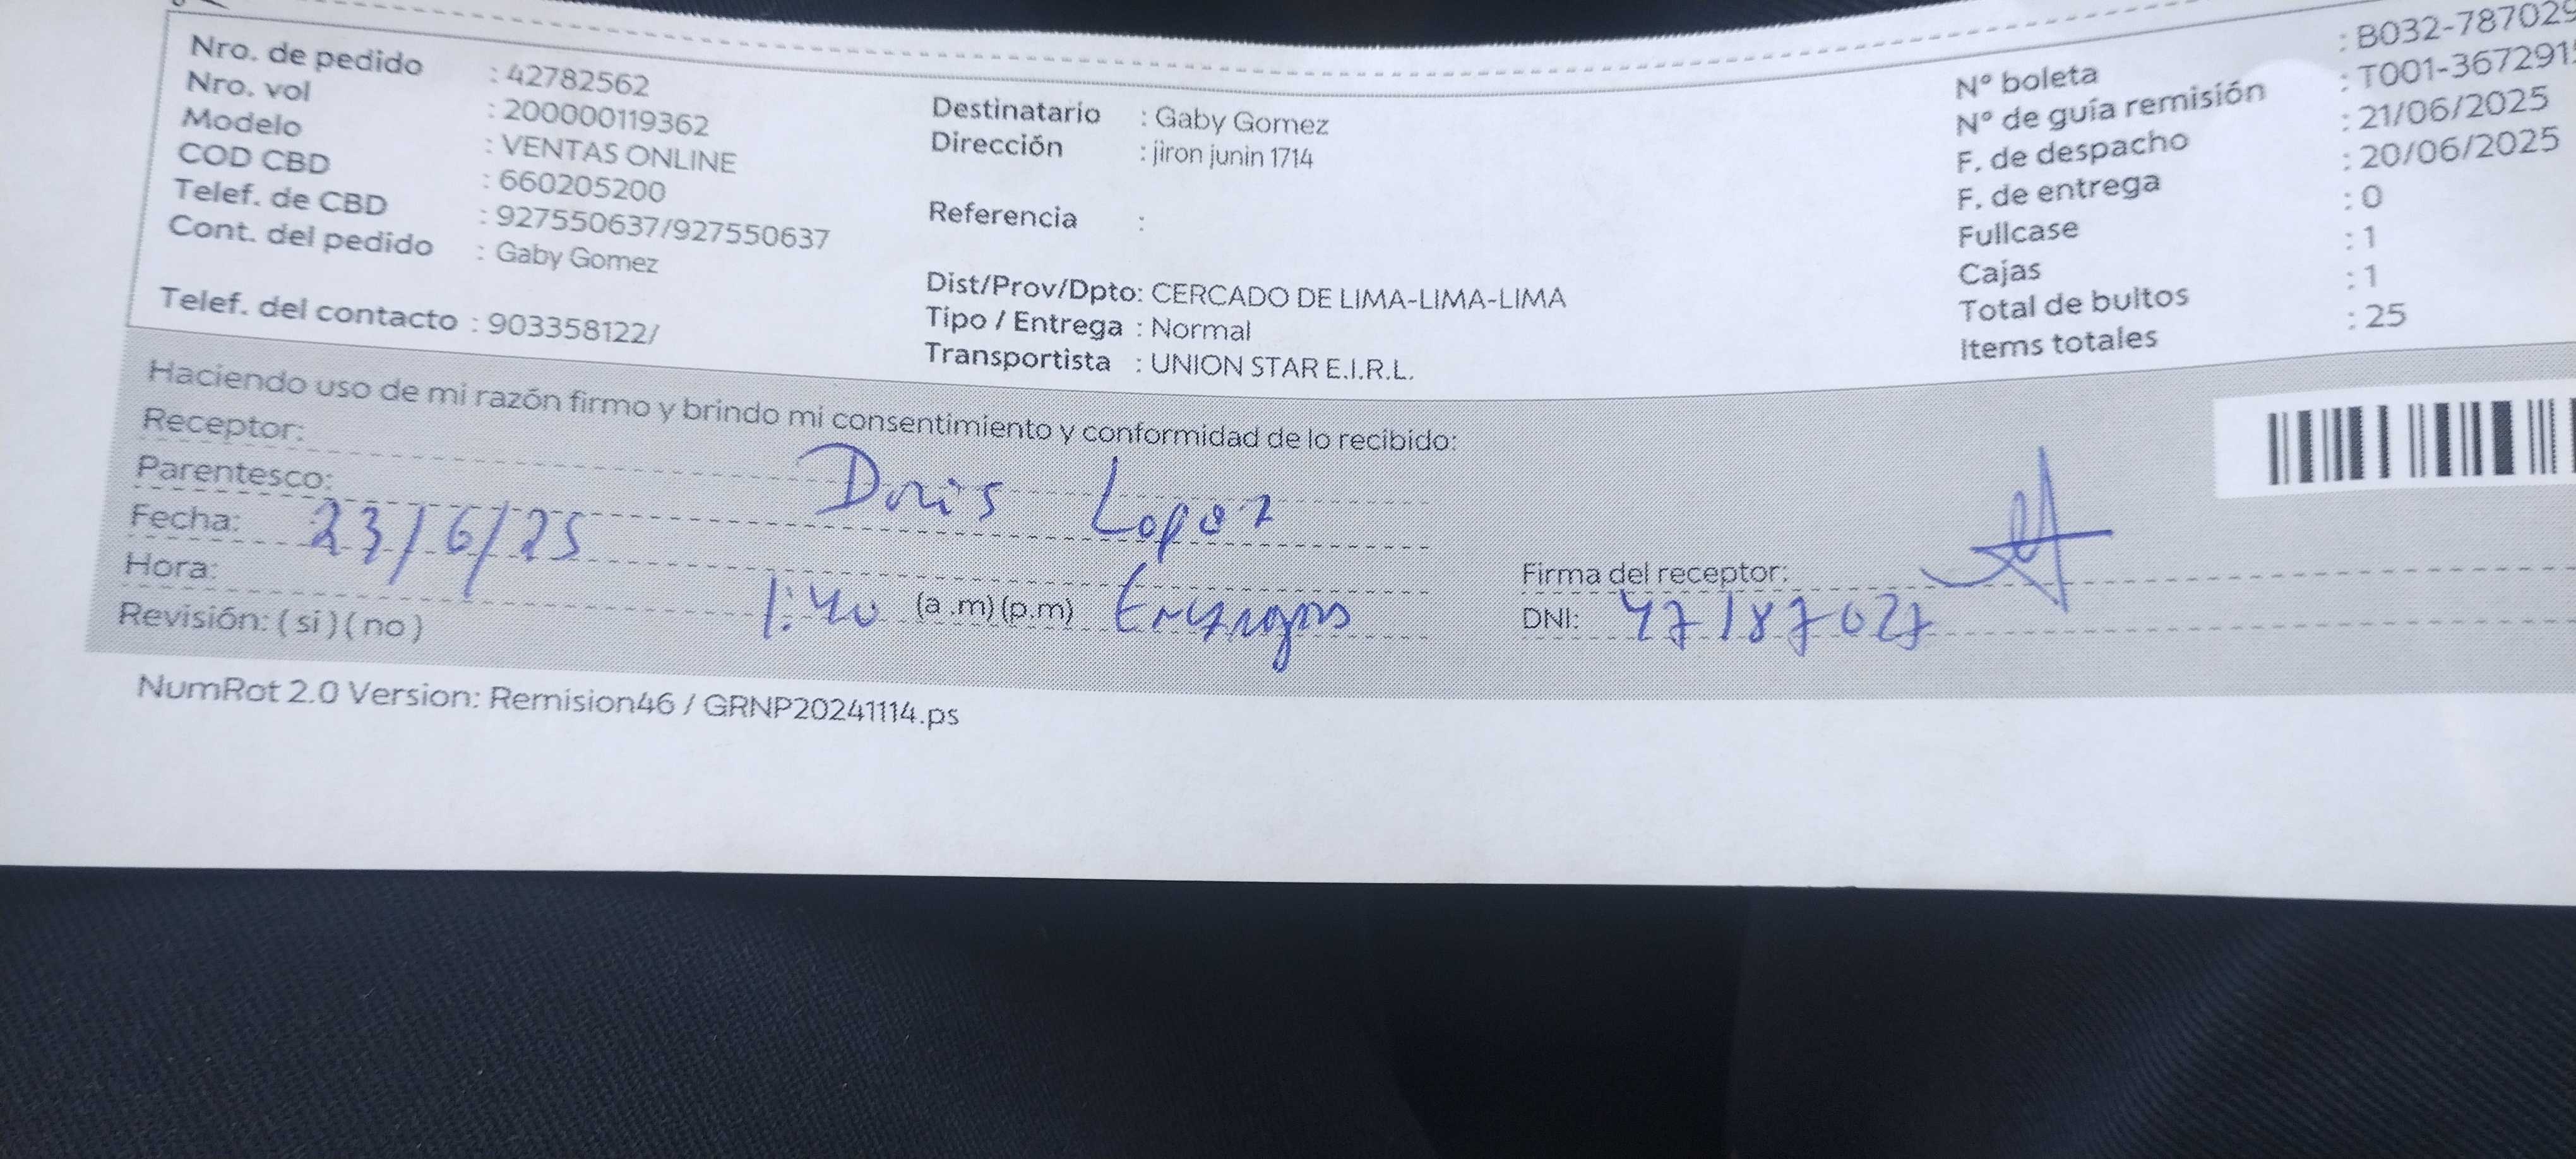 Nro. de pedido : 42782562
Nro. vol : 200000119362
Modelo : VENTAS ONLINE
COD CBD : 660205200
Telef. de CBD : 927550637/927550637
Cont. del pedido : Gaby Gomez
Telef. del contacto : 903358122/
Destinatario : Gaby Gomez
Dirección : jiron junin 1714
Referencia :
Dist/Prov/Dpto: CERCADO DE LIMA-LIMA-LIMA
Tipo / Entrega : Normal
Transportista : UNION STAR E.I.R.L.
N° boleta : B032-787029
N° de guía remisión : T001-367291
F. de despacho : 21/06/2025
F. de entrega : 20/06/2025
Fullcase : 0
Cajas : 1
Total de bultos : 1
Items totales : 25
Haciendo uso de mi razón firmo y brindo mi consentimiento y conformidad de lo recibido:
Receptor: Doris Lopez
Parentesco:
Fecha: 23/6/25
Hora: 1:40 (a .m) (p.m)
Revisión: ( si ) ( no )
Firma del receptor:
DNI: 47187027
NumRot 2.0 Version: Remision46 / GRNP20241114.ps